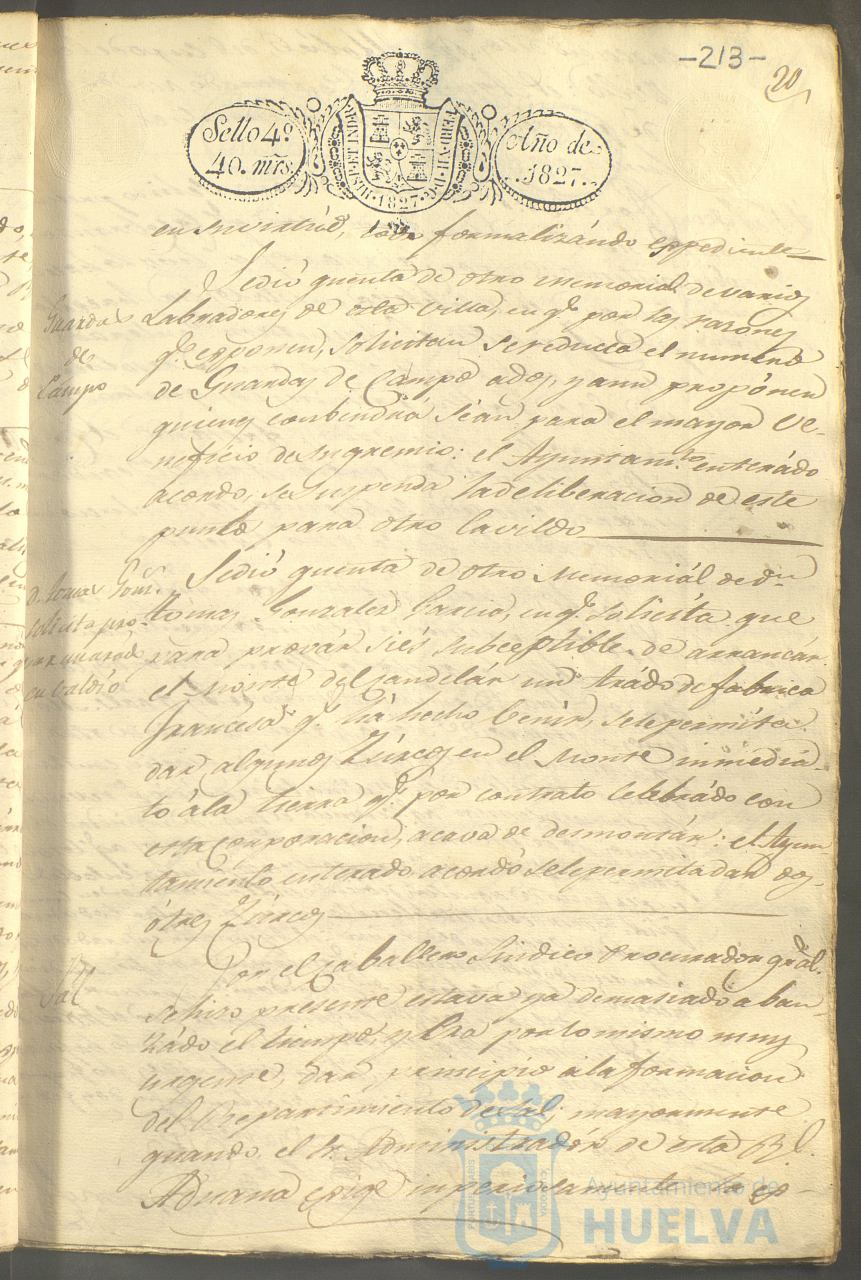 -213-
20
Sello 4º
40. mrs
HISP. ET IND. R.
FERD. VII. D. G.
1827
Año de
1827.
en su virtúd, formalizándo Espediente
Se dió quenta de otro memorial de varios
Guardas
de
Campo
Labradores de esta villa, en q.e por las razones
q.e esponen, solicitan se reducca el numero
de Guardas de Campo a dos, y aun propónen
quienes conbendrá séan para el mayor ve-
neficio de su gremio: el Ayuntam.to enterádo
acordo, se suspenda la deliberacion de este
punto para otro Cavildo
D. Tomas Gonz.
solicita
en baldío
Se dió quenta de otro Memoriál de d.n
tomas Gonzalez Garcia, en q.e solicíta que
para prován si és subceptible de arrancár
el monte del candelár un arádo de fabrica
francesa q.e há hecho benir, se le permita
dar algunos zúrcos en el Monte inmediá-
to á la tierra q.e por contrato celebrádo con
esta corporacion, acava de desmontár: el Ayun
tamiento enterado acordó se le permita dar dos
ó tres zúrcos
Sal
Por el Caballero Sindico Procurador grál.
se hizo presente estava ya demasiádo aban-
zádo el tiempo, y Era por lo mismo muy
urgente, dar principio á la formacion
del Repartimiento de sal; mayormente
quando el Sr. Administradór de esta Rl.
Aduana exige imperiosamente
Ayuntamiento de
HUELVA